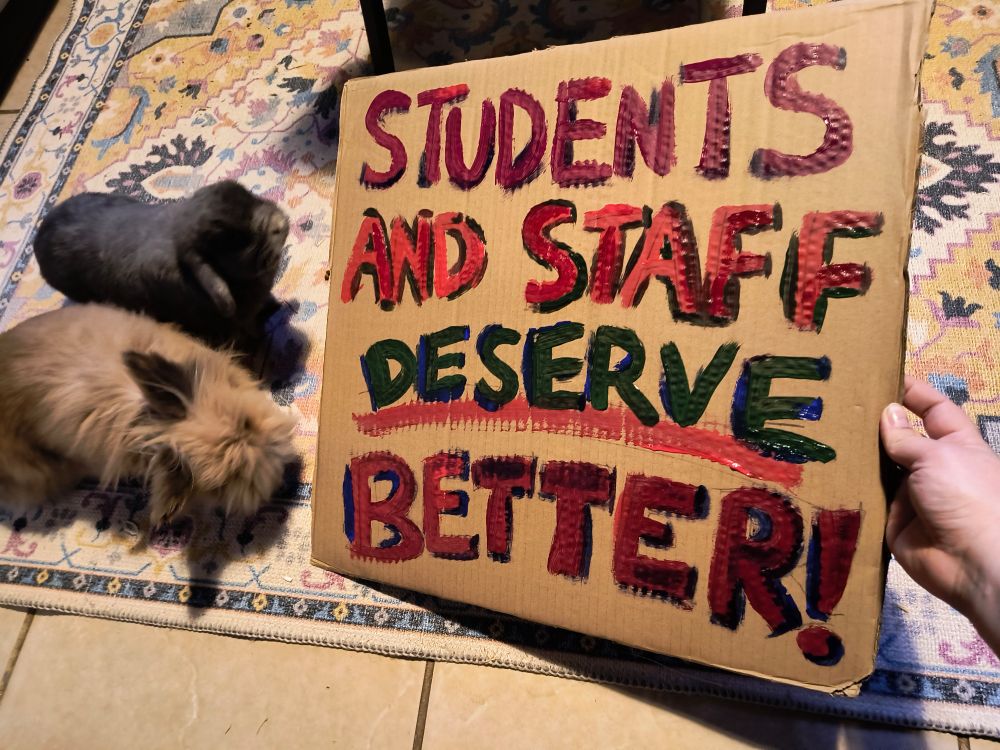 STUDENTS
AND STAFF
DESERVE
BETTER!